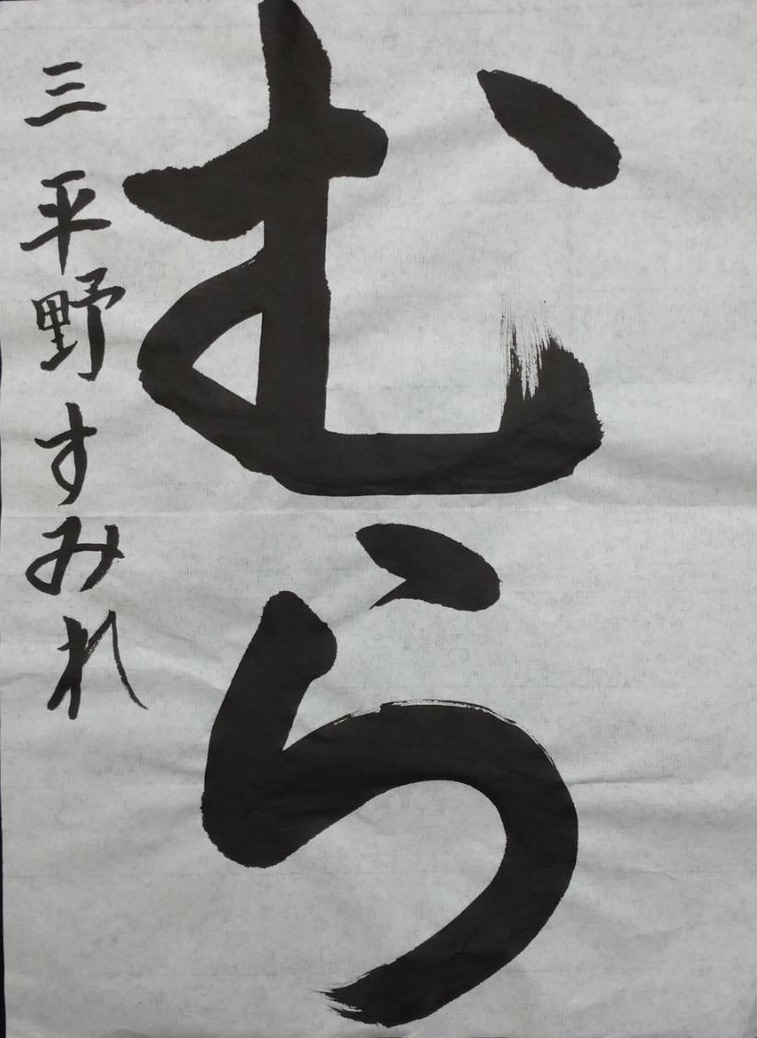 むら
三 平野すみれ